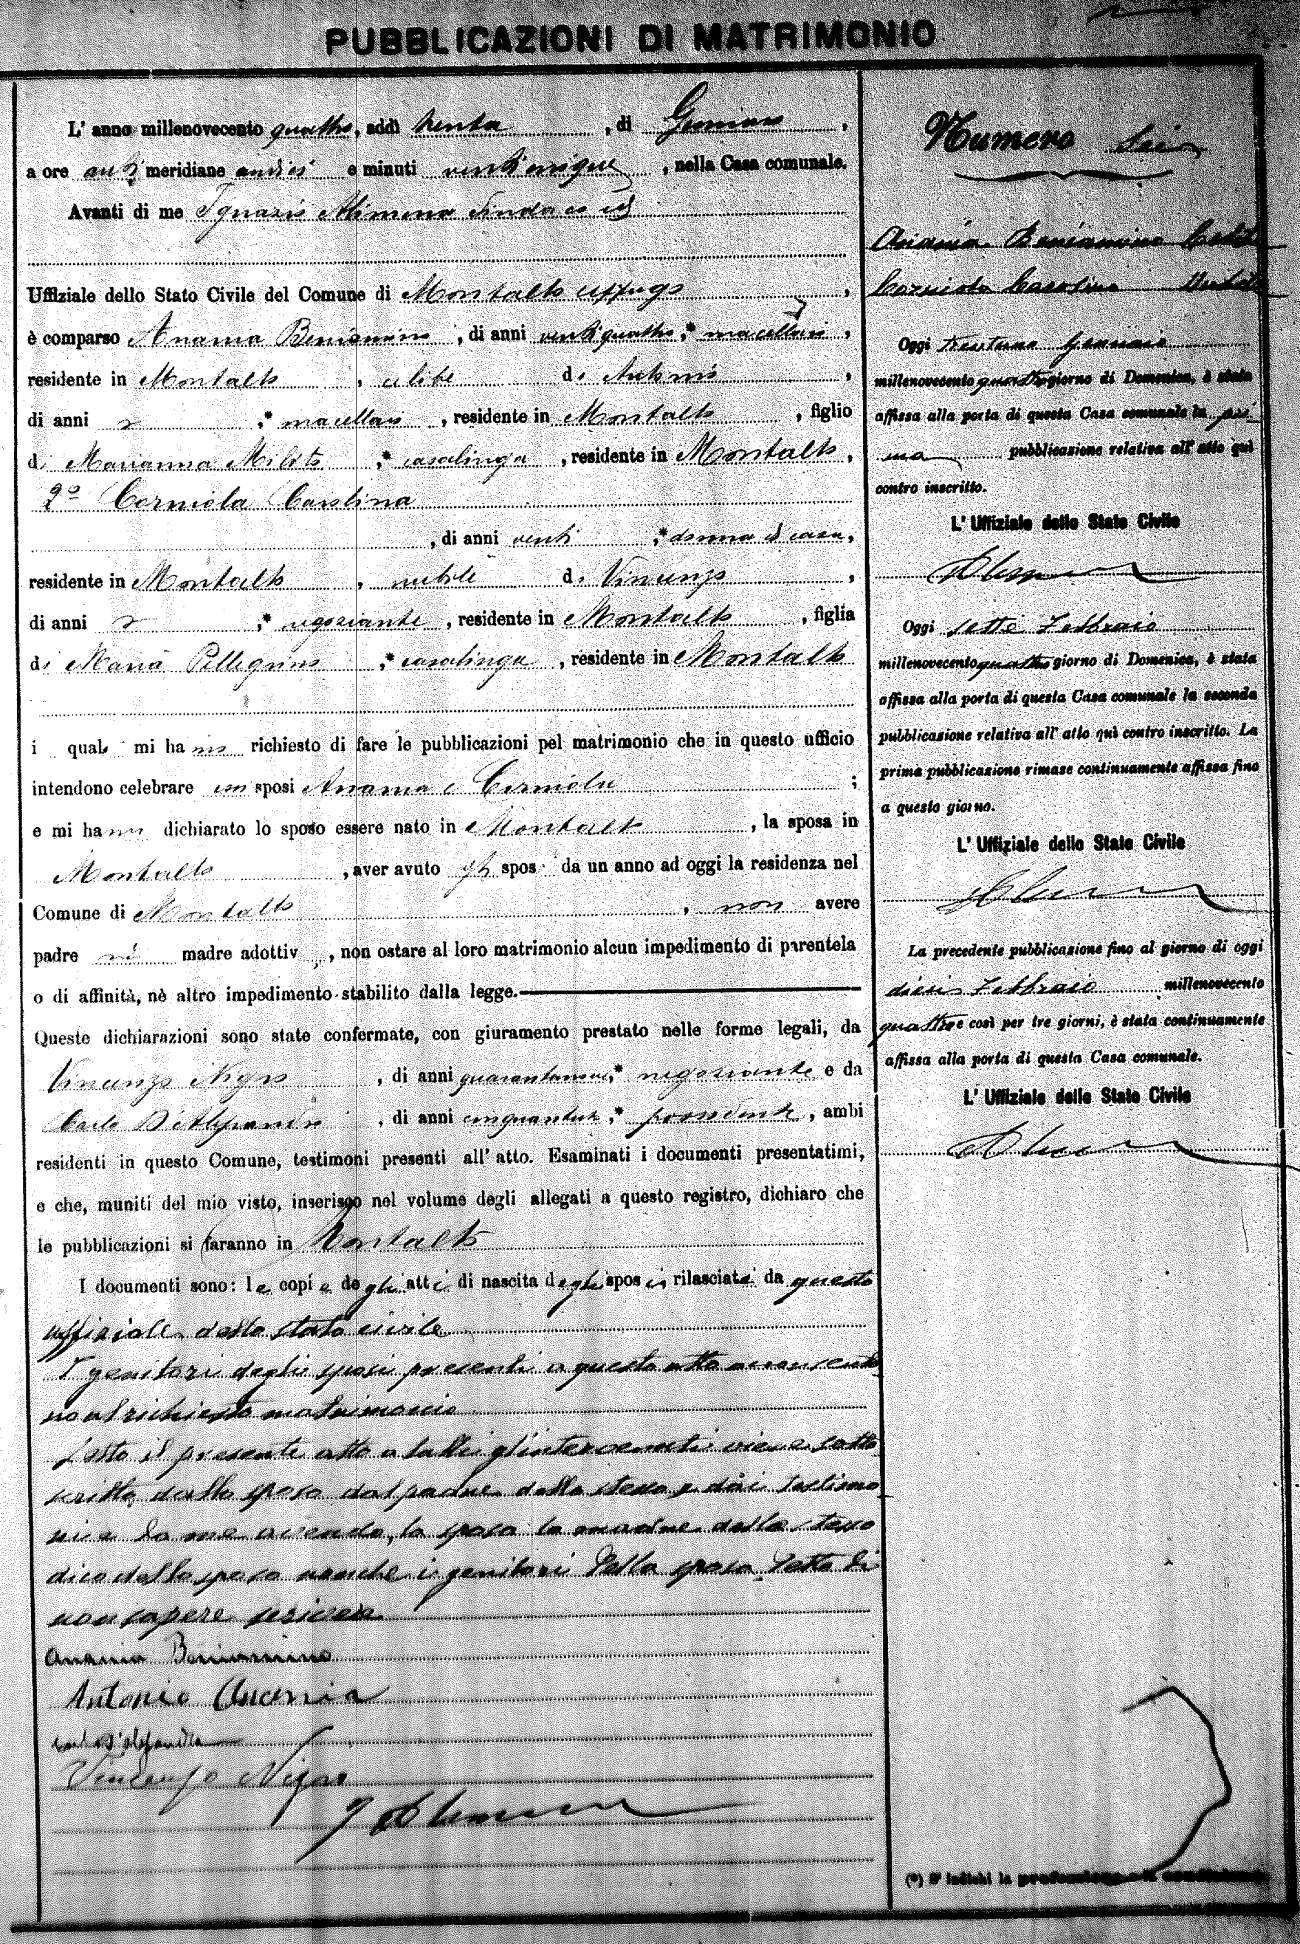 PUBBLICAZIONI DI MATRIMONIO
L' anno millenovecento quattro, addì trenta, di Gennaio,
a ore anti meridiane undici e minuti venticinque, nella Casa comunale.
Avanti di me Ignazio Alimena Sindaco ed
Uffiziale dello Stato Civile del Comune di Montalto Uffugo,
è comparso Anania Beniamino, di anni ventiquattro,* macellaio,
residente in Montalto, celibe di Antonio,
di anni ,* macellaio, residente in Montalto, figlio
di Marianna Milito,* casalinga, residente in Montalto,
2º Corniola Carolina
, di anni venti,* donna di casa,
residente in Montalto, nubile di Vincenzo,
di anni ,* negoziante, residente in Montalto, figlia
di Maria Pellegrino,* casalinga, residente in Montalto
i quali mi hanno richiesto di fare le pubblicazioni pel matrimonio che in questo ufficio
intendono celebrare essi sposi Anania e Corniola;
e mi hanno dichiarato lo sposo essere nato in Montalto, la sposa in
Montalto, aver avuto gli sposi da un anno ad oggi la residenza nel
Comune di Montalto, non avere
padre nè madre adottiv , non ostare al loro matrimonio alcun impedimento di parentela
o di affinità, nè altro impedimento stabilito dalla legge.
Queste dichiarazioni sono state confermate, con giuramento prestato nelle forme legali, da
Vincenzo Nigro, di anni quarantanove,* negoziante e da
Carlo D'Alessandro, di anni,* possidente, ambi
residenti in questo Comune, testimoni presenti all' atto. Esaminati i documenti presentatimi,
e che, muniti del mio visto, inserisco nel volume degli allegati a questo registro, dichiaro che
le pubblicazioni si faranno in Montalto
I documenti sono: le copie degli atti di nascita degli sposi rilasciate da questo
uffiziale dello stato civile
I genitori degli sposi presenti a questo atto acconsento
no al richiesto matrimonio
Letto il presente atto a tutti gl'intervenuti viene sotto
scritto dallo sposo dal padre dello stesso e dai testimo
ni e da me avendo, la sposa la madre dello stesso
dico dello sposo nonchè i genitori della sposa detto di
non sapere scrivere
Anania Beniamino
Antonio Anania
Carlo D'Alessandro
Vincenzo Nigro
I Alimena
Numero Sei
Anania Beniamino Celibe
Corniola Carolina Nubile
Oggi trentuno Gennaio
millenovecento quattro giorno di Domenica, è stata
affissa alla porta di questa Casa comunale la pri
ma pubblicazione relativa all' atto quì
contro inscritto.
L' Uffiziale dello Stato Civile
Alimena
Oggi sette Febbraio
millenovecento quattro giorno di Domenica, è stata
affissa alla porta di questa Casa comunale la seconda
pubblicazione relativa all' atto quì contro inscritto. La
prima pubblicazione rimase continuamente affissa fino
a questo giorno.
L' Uffiziale dello Stato Civile
Alimena
La precedente pubblicazione fino al giorno di oggi
dieci Febbraio millenovecento
quattro e così per tre giorni, è stata continuamente
affissa alla porta di questa Casa comunale.
L' Uffiziale dello Stato Civile
Alimena
(*) S' indichi la professione o la condizione.